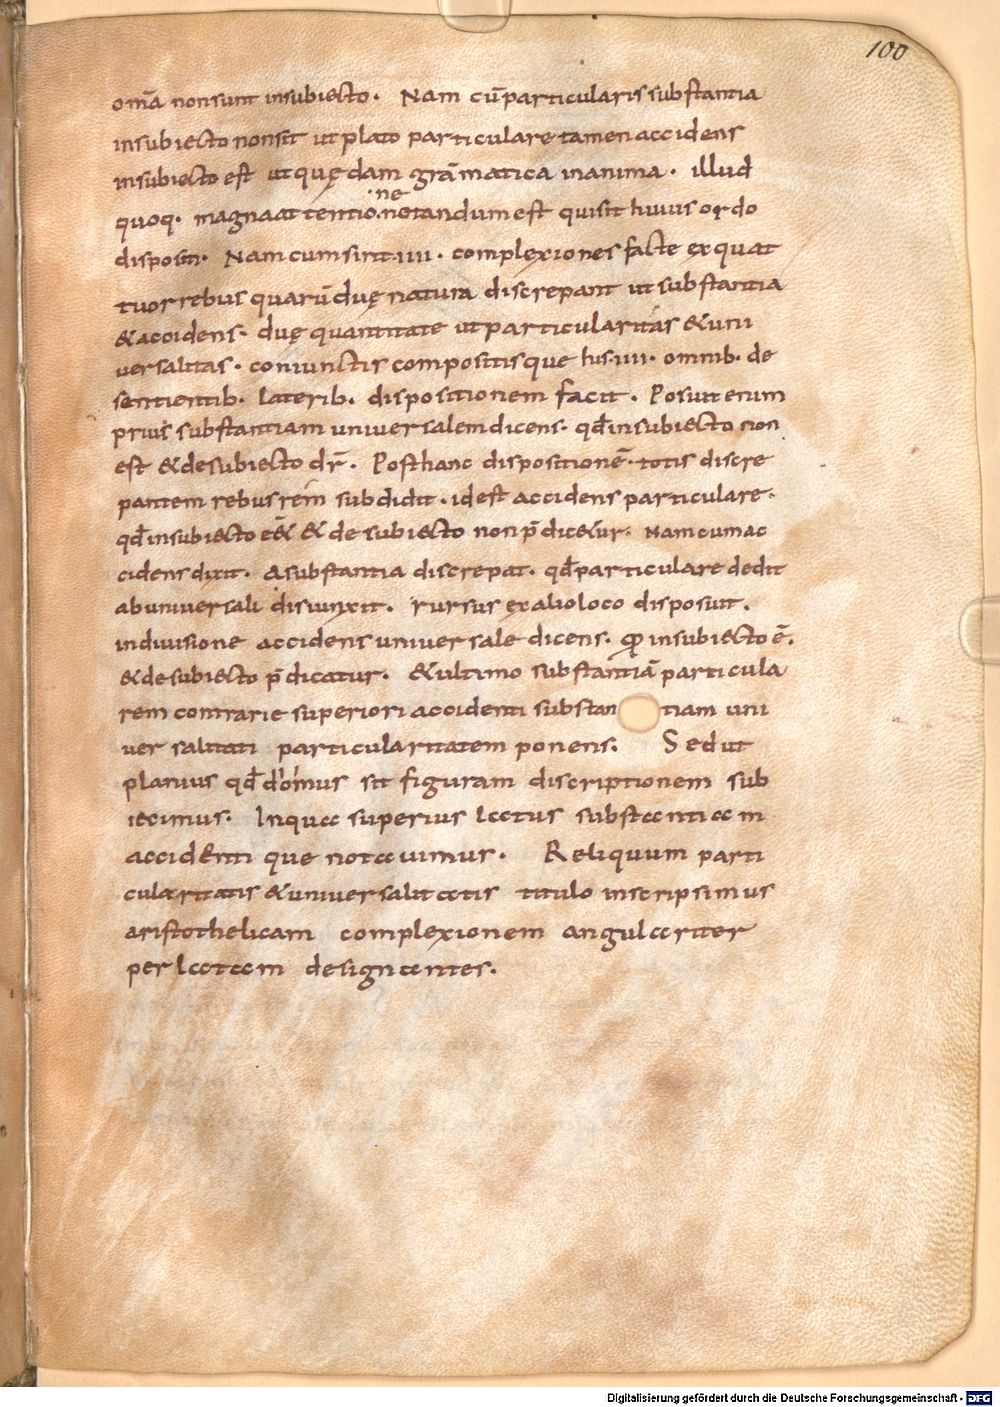 100
om̄a non sunt insubiecto. Nam cū particularis substantia
insubiecto non sit ut plato particulare tamen accidens
insubiecto est ut quędam grāmatica inanima. illud
quoq. magna attentio.ne notandum est quisit huius ordo
dispositi. Nam cum sint.iiii. complexiones facte ex quat
tuor rebus quarū duę natura discrepant ut substantia
& accidens. duę quantitate ut particularitas & uni
versalitas. coniunctis compositisque his.iiii. omnib. de
sentientib. laterib. dispositionem facit. Posuit enim
prius substantiam universalem dicens. qđ insubiecto non
est & desubiecto dr̄. Posthanc dispositionē. totis discre
pantem rebus rem subdidit. id est accidens particulare.
qđ insubiecto eē& & de subiecto non p̄dic&ur. Nam cum ac
cidens dixit. Asubstantia discrepat. qđ particulare dedit
ab universali disiunxit. rursus ex alio loco disposuit.
indivisione accidens universale dicens. qđ insubiecto ē.
& desubiecto p̄dicatur. & ultimo substantiā particula
rem contrarie superiori accidenti substantiam uni
versalitati particularitatem ponens. Sed ut
planius qđ domus sit figuram discriptionem sub
iecimus. Inquo superius latus substantiam
accidenti que notavimus. Reliquum parti
cularitatis & universalitatis titulo inscripsimus
aristothelicam complexionem angulariter
per latam designantes.
Digitalisierung gefördert durch die Deutsche Forschungsgemeinschaft - DFG